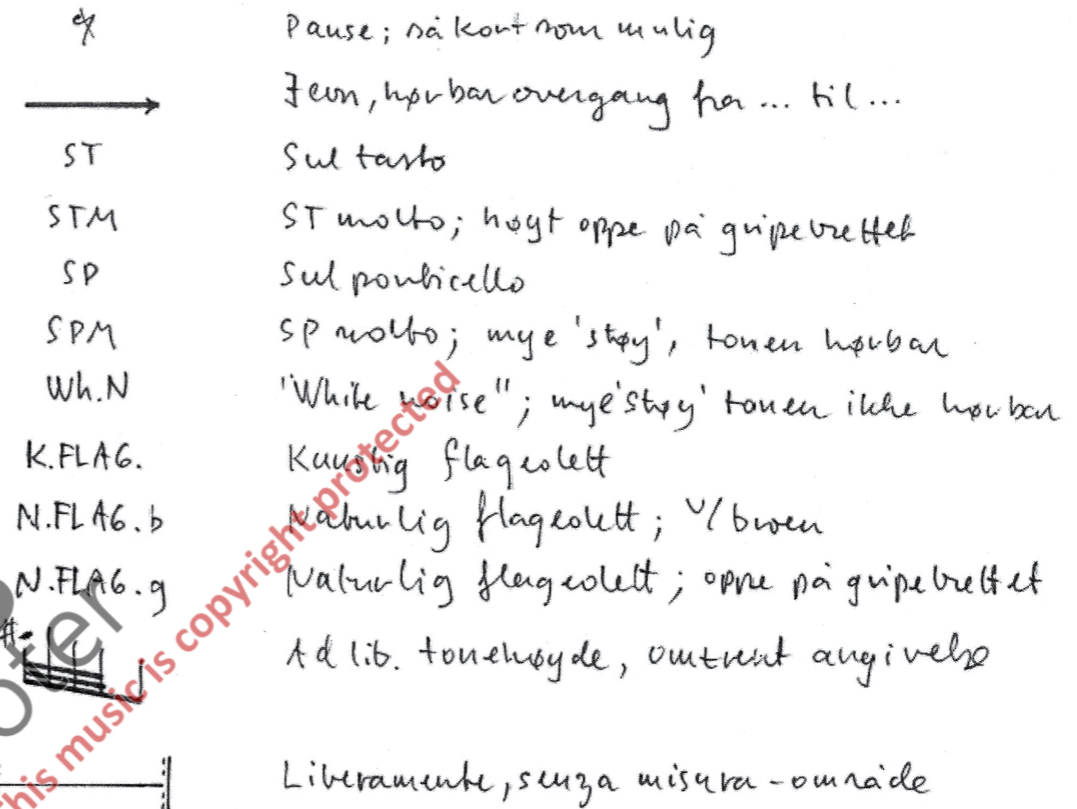 Pause; så kort som mulig
Jevn, hørbar overgang fra ... til ...
ST Sul tasto
STM ST molto; høyt oppe på gripebrettet
SP Sul ponticello
SPM SP molto; mye 'støy', tonen hørbar
Wh.N "White noise"; mye 'støy' tonen ikke hørbar
K.FLAG. Kunstig flageolett
N.FLAG.b Naturlig flageolett; v/broen
N.FLAG.g Naturlig flageolett; oppe på gripebrettet
Ad lib. tonehøyde, omtrent angivelse
Liberamente, senza misura-område
This music is copyright protected